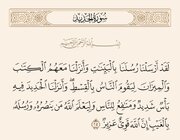 سُورَةُ الْحَدِيدِ
لَقَدْ أَرْسَلْنَا رُسُلَنَا بِالْبَيِّنَاتِ وَأَنزَلْنَا مَعَهُمُ الْكِتَابَ
وَالْمِيزَانَ لِيَقُومَ النَّاسُ بِالْقِسْطِ وَأَنزَلْنَا الْحَدِيدَ فِيهِ
بَأْسٌ شَدِيدٌ وَمَنَافِعُ لِلنَّاسِ وَلِيَعْلَمَ اللَّهُ مَن يَنصُرُهُ وَرُسُلَهُ
بِالْغَيْبِ إِنَّ اللَّهَ قَوِيٌّ عَزِيزٌ ٢٥